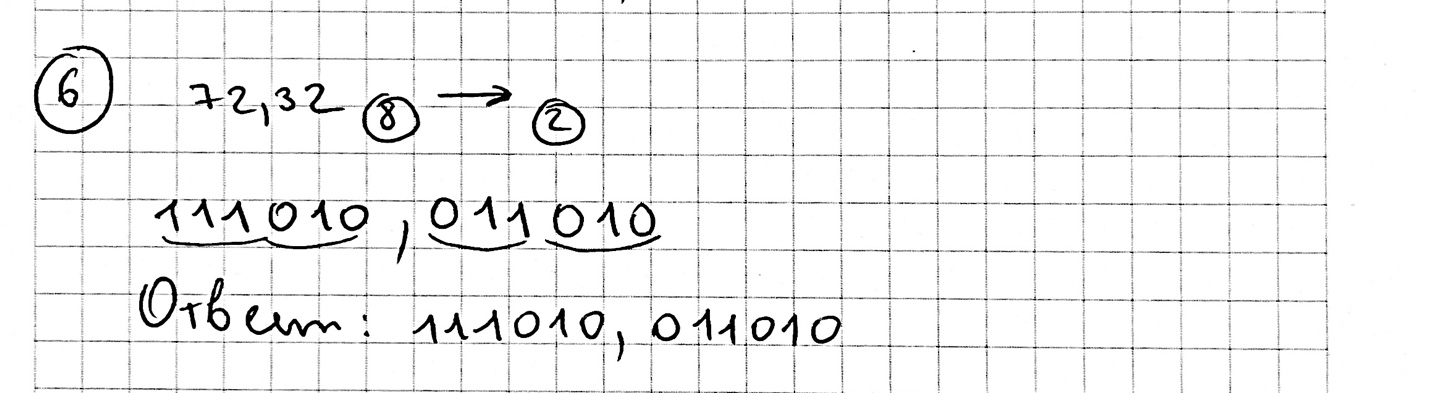 6 72,32 8 → 2
111010,011010
Ответ: 111010,011010